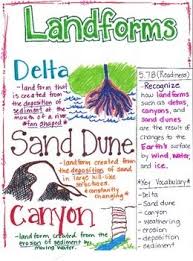 Landforms
Delta
-landform that
is created from
the deposition of
sediment at the
mouth of a river
*fan shaped*
5.7B (Readiness)
- Recognize
how landforms
such as deltas,
canyons, and
sand dunes
are the result of
changes to the
Earth's surface
by wind, water,
and ice.
Sand Dune
-landform created from
the deposition of sand
in large hill-like
structures.
*constantly
changing*
*Key Vocabulary*
-delta
- Sand dune
- canyon
- weathering
- erosion
- deposition
- sediment
Canyon
- landform created from the
erosion of sediment by
moving water.